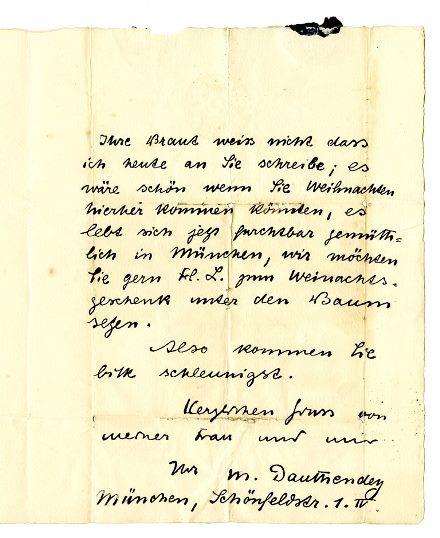 Ihre Braut weiss nicht dass
ich heute an Sie schreibe; es
wäre schön wenn Sie Weihnachten
hierher kommen könnten, es
lebt sich jetzt furchtbar gemüth=
lich in München, wir möchten
Sie gern Frl. L. zum Weinachts-
geschenk unter den Baum
setzen.
Also kommen Sie
bitte schleunigst.
Herzlichen Gruss von
meiner Frau und mir
Ihr M. Dauthendey
München, Schönfeldstr. 1. IV.